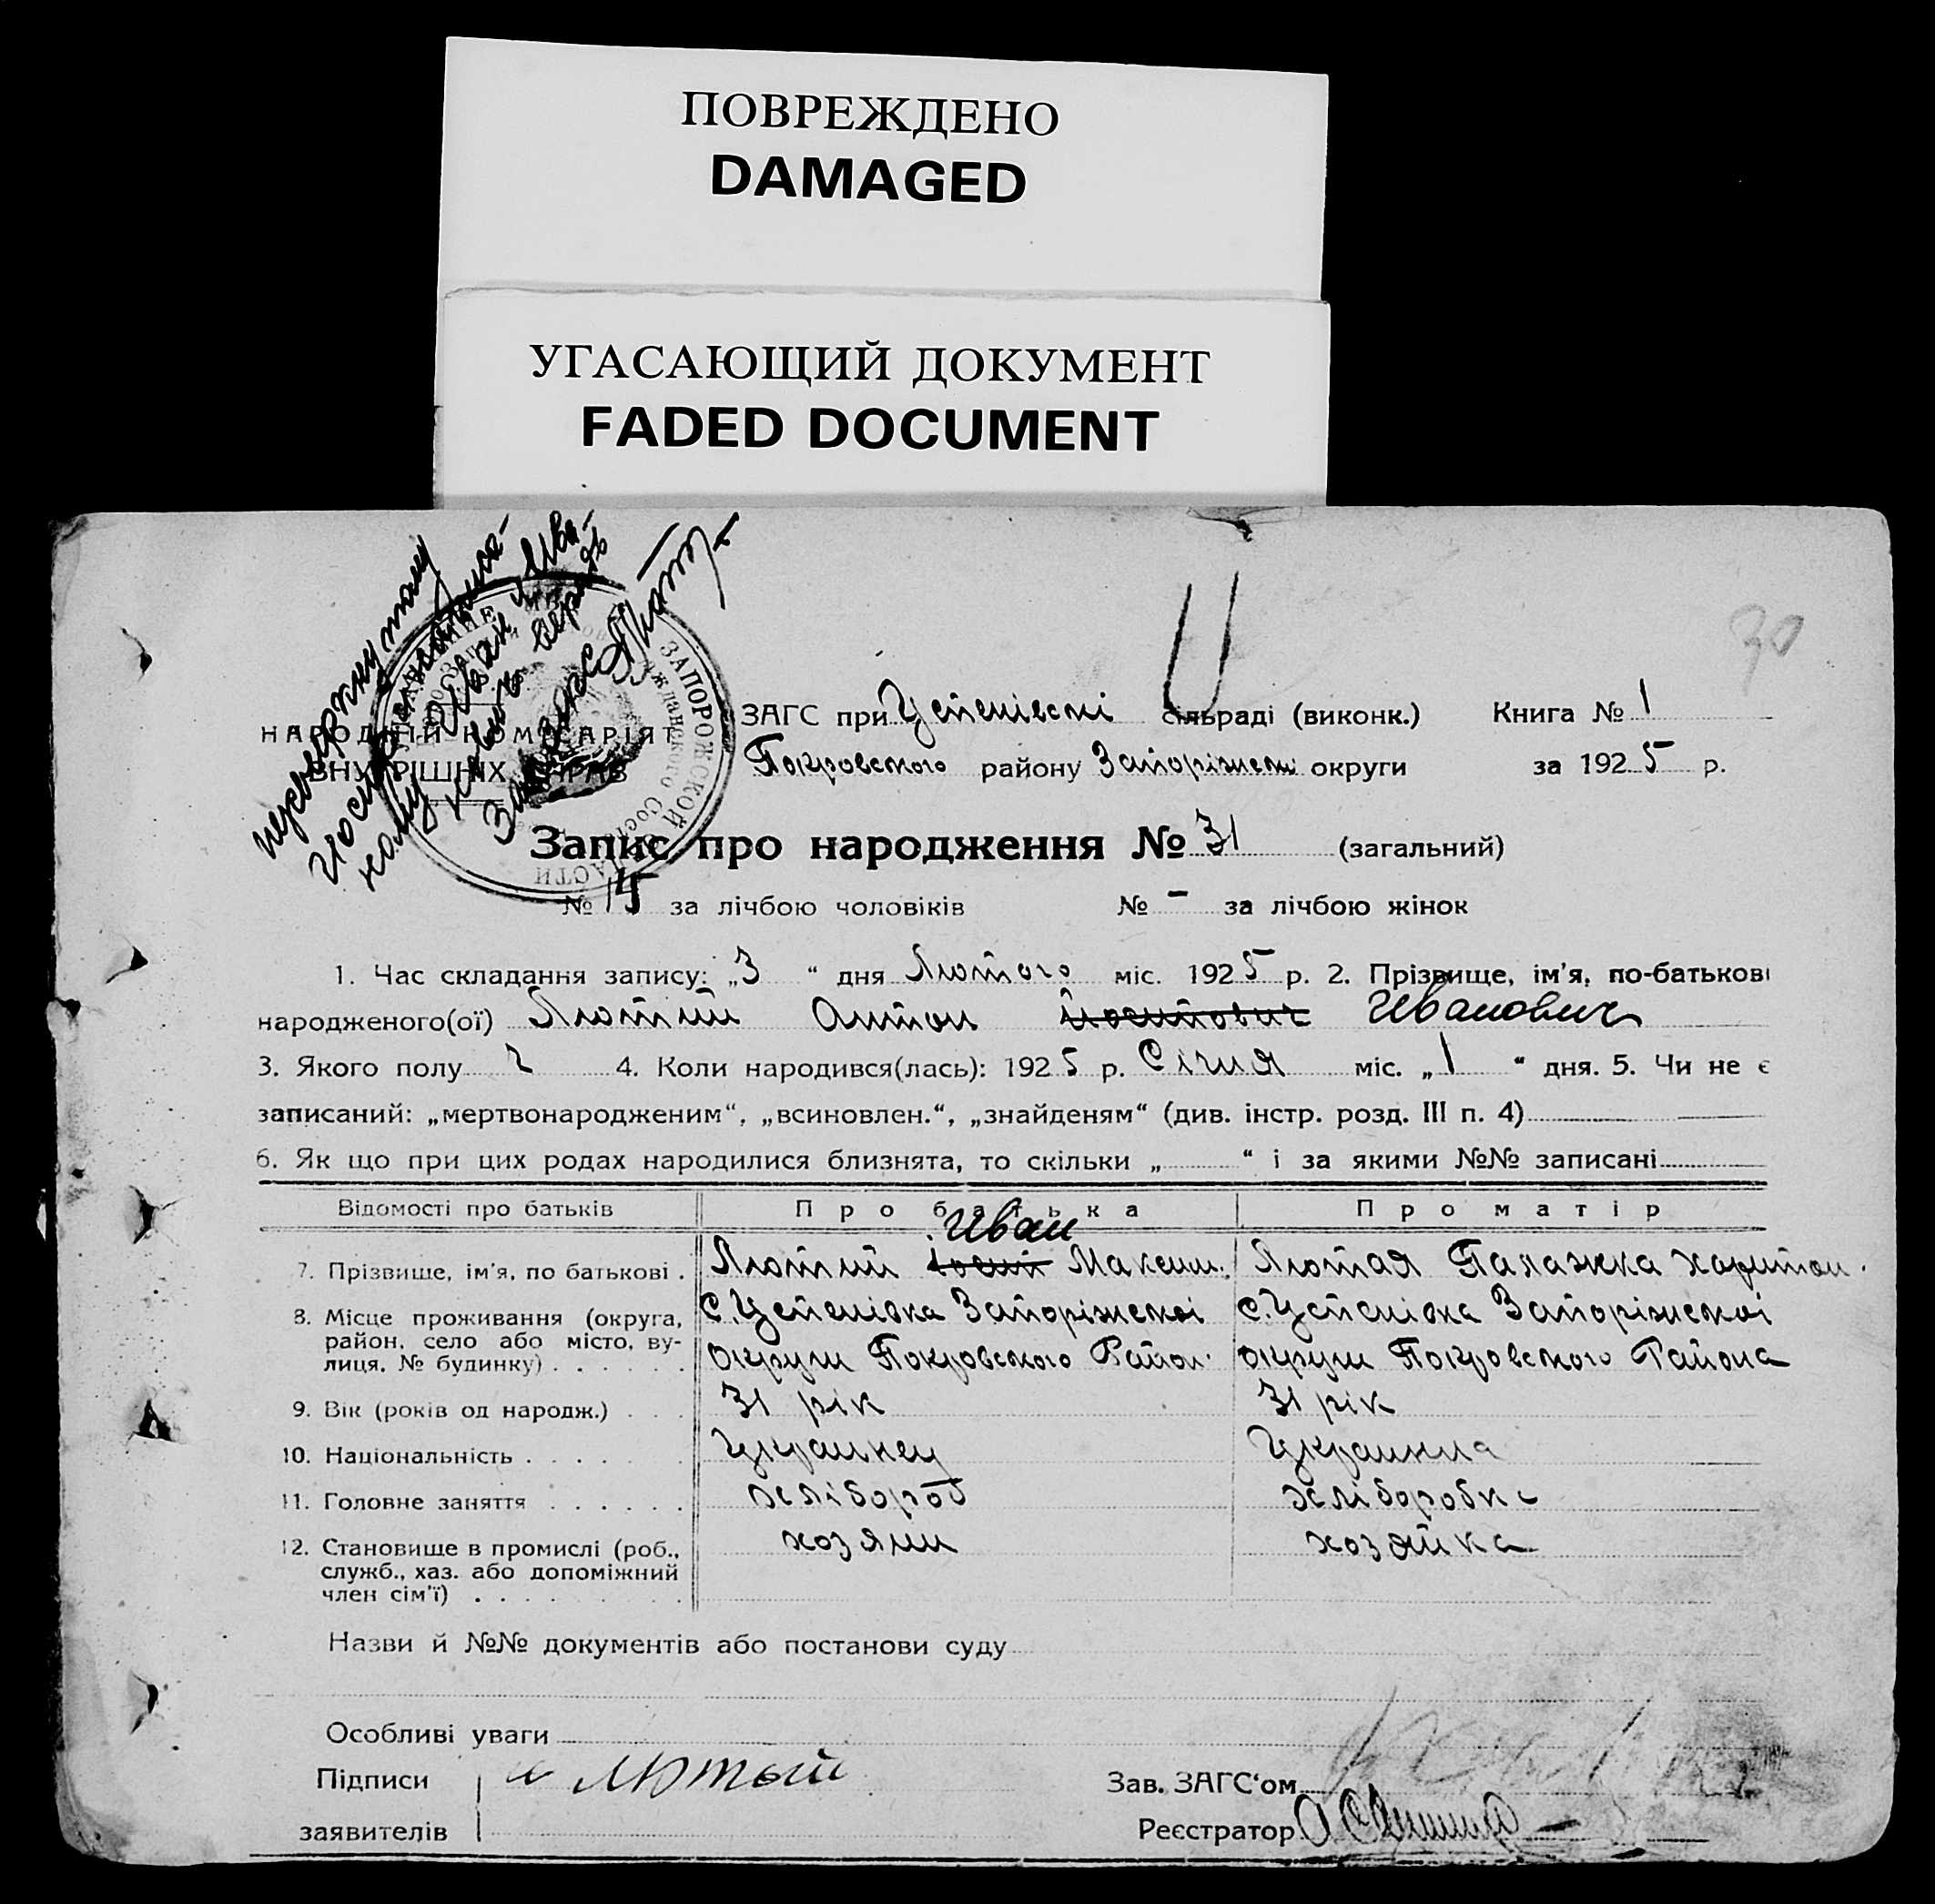 ПОВРЕЖДЕНО
DAMAGED
УГАСАЮЩИЙ ДОКУМЕНТ
FADED DOCUMENT
30
зачеркнутому
ному Иван Ива-
нович верить
НАРОДНІЙ КОМІСАРІЯТ
ВНУТРІШНІХ СПРАВ
ЗАПОРОЖСКОЙ ОБЛАСТИ
ЗАГС при Успенівскі сільраді (виконк.) Книга № 1
Покровского району Запоріжськ округи за 1925 р.
Запис про народження № 31 (загальний)
№ 15 за лічбою чоловіків № - за лічбою жінок
1. Час складання запису: „3 “ дня Лютого міс. 1925 р. 2. Прізвище, ім'я, по-батькові
народженого(ої) Лютий Антон Йосипович Иванович
3. Якого полу ч 4. Коли народився(лась): 1925 р. Січня міс. „1 “ дня. 5. Чи не є
записаний: „мертвонародженим“, „всиновлен.“, „знайденям“ (див. інстр. розд. III п. 4)
6. Як що при цих родах народилися близнята, то скільки „ “ і за якими №№ записані
Відомості про батьків Про батька Про матір
Иван
7. Прізвище, ім'я, по батькові . Лютий Йосип Максим. Лютая Палажка Харитон.
8. Місце проживання (округа, район, село або місто, ву-лиця, № будинку) . . . . . . с. Успенівка Запоріжскоі с. Успенівка Запоріжскоі
округи Покровского Район. округи Покровского Района
9. Вік (років од народж.) . . . 31 рік 31 рік
10. Національність . . . . . . Украинец Украинка
11. Головне заняття . . . . . . хлібороб хліборобка
12. Становище в промислі (роб., служб., хаз. або допоміжний член сім'ї) . . . . . . . . хозяин хозяйка
Назви й №№ документів або постанови суду
Особливі уваги
Підписи и Лютый Зав. ЗАГС'ом
заявителів Реєстратор